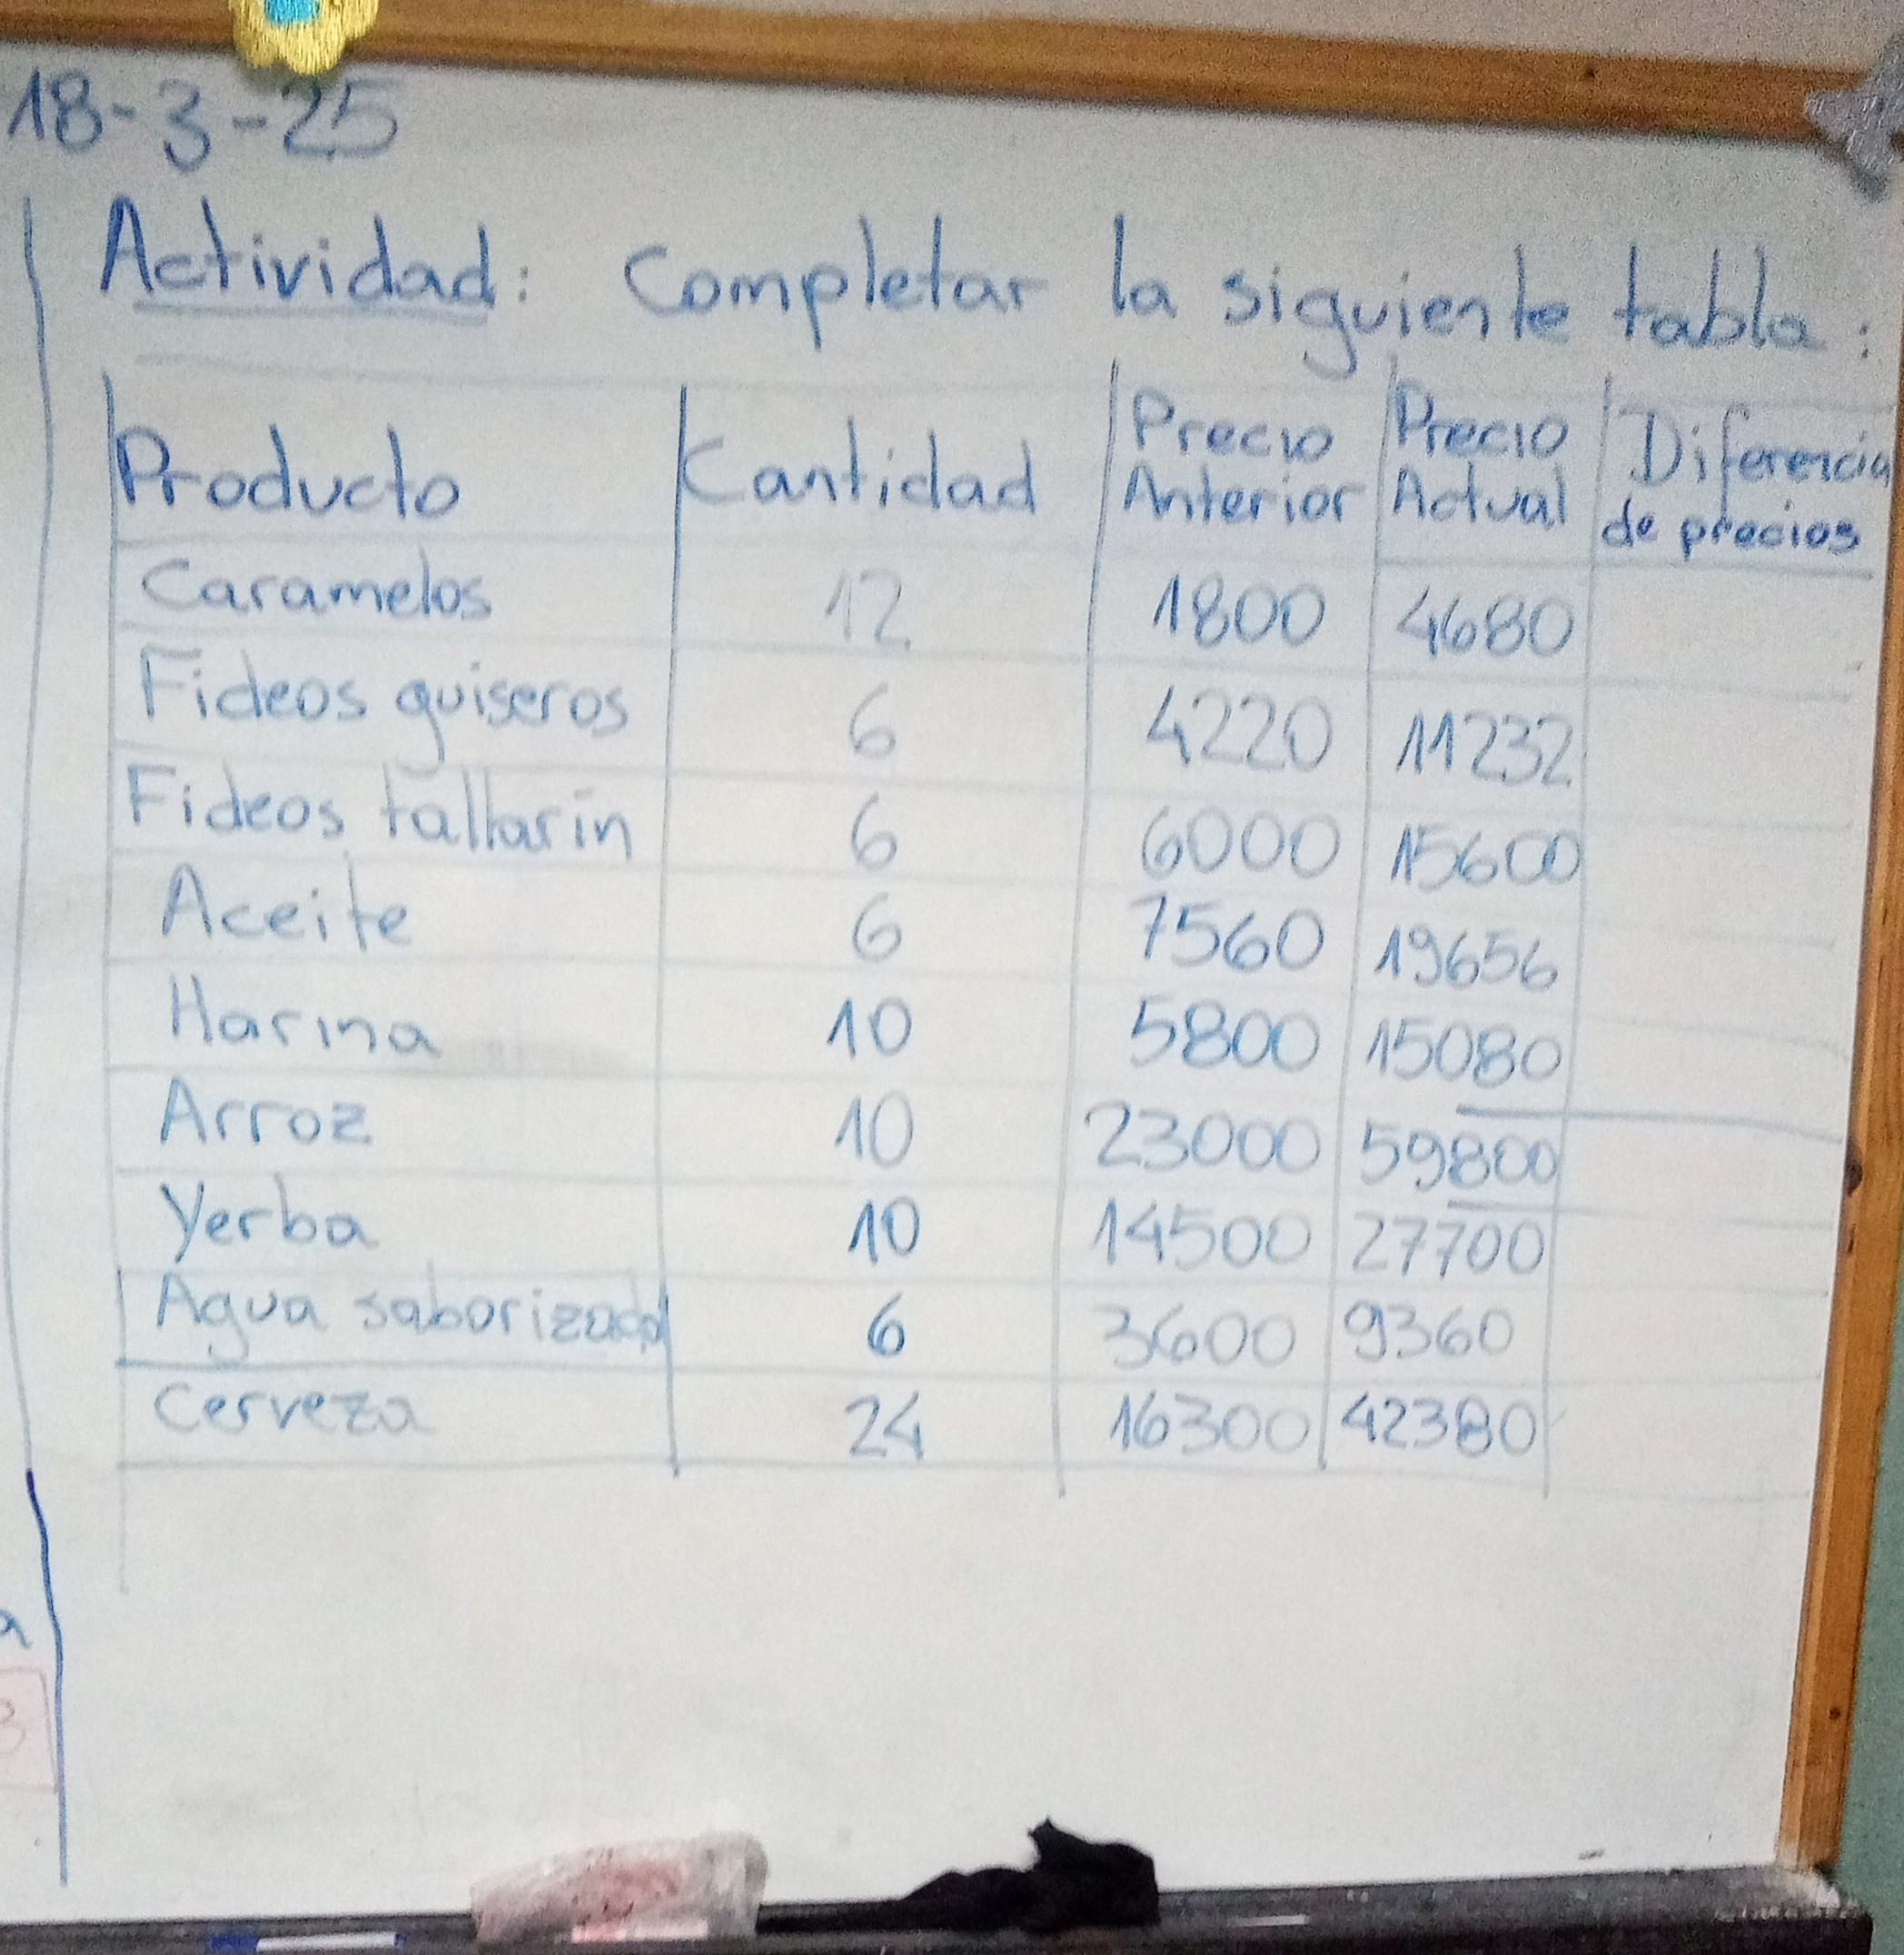 18-3-25
Actividad: Completar la siguiente tabla:
Producto Cantidad Precio Anterior Precio Actual Diferencia de precios
Caramelos 12 1800 4680
Fideos guiseros 6 4220 11232
Fideos tallarin 6 6000 15600
Aceite 6 7560 19656
Harina 10 5800 15080
Arroz 10 23000 59800
Yerba 10 14500 27700
Agua saborizada 6 3600 9360
Cerveza 24 16300 42380
a
3